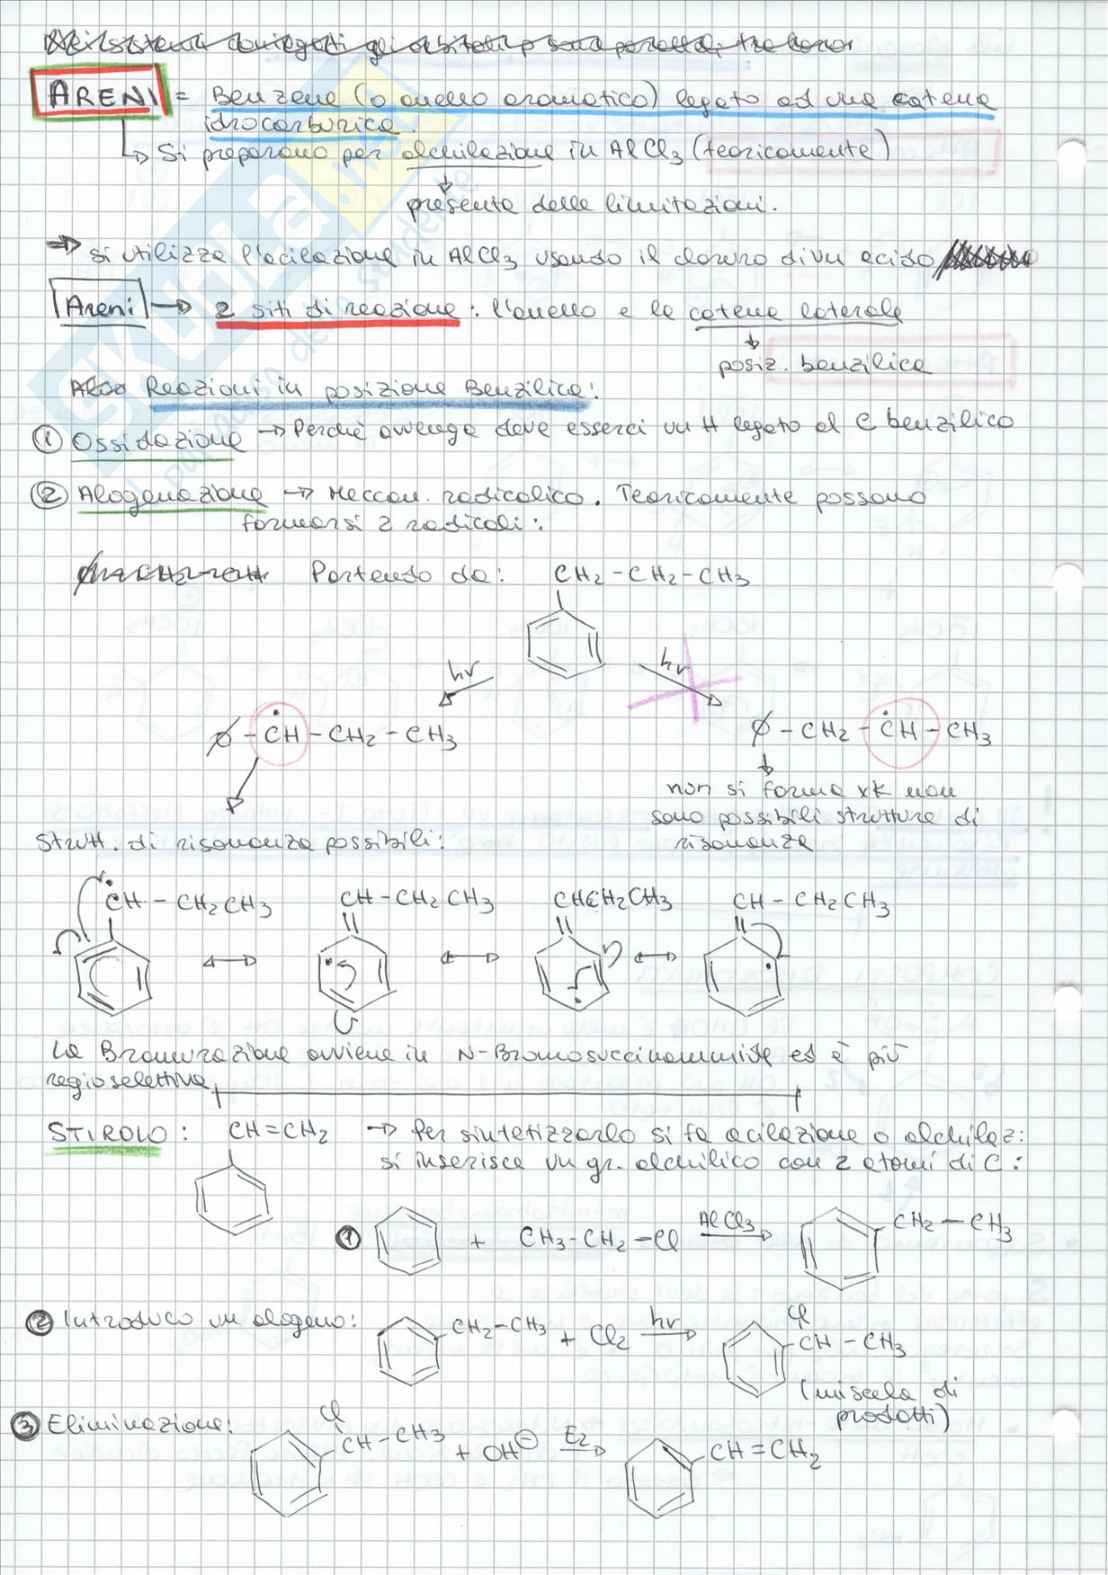 Nei sistemi coniugati gli orbitali p sono paralleli tra loro
ARENI = Benzene (o anello aromatico) legato ad una catena
idrocarburica.
↳ Si preparano per alchilazione in AlCl3 (teoricamente)
↓
presenta delle limitazioni.
⇒ si utilizza l'acilazione in AlCl3 usando il cloruro di un acido
Areni → 2 siti di reazione: l'anello e la catena laterale
↓
posiz. benzilica
Reazioni in posizione Benzilica:
① Ossidazione → Perché avvenga deve esserci un H legato al C benzilico
② Alogenazione → Meccan. radicalico. Teoricamente possono
formarsi 2 radicali:
Partendo da: CH2-CH2-CH3
hν hν
Ø-ĊH-CH2-CH3 Ø-CH2-ĊH-CH3
non si forma xk non
sono possibili strutture di
risonanza
Strutt. di risonanza possibili:
ĊH-CH2CH3 CH-CH2CH3 CHCH2CH3 CH-CH2CH3
↔ ↔ ↔
La Bromurazione avviene in N-Bromosuccinammide ed è più
regioselettiva
STIROLO: CH=CH2 → Per sintetizzarlo si fa acilazione o alchilaz:
si inserisce un gr. alchilico con 2 atomi di C:
① + CH3-CH2-Cl AlCl3 → CH2-CH3
② Introduco un alogeno: CH2-CH3 + Cl2 hν → Cl CH-CH3
(miscela di
prodotti)
③ Eliminazione: Cl CH-CH3 + OH⊖ E2 → CH=CH2